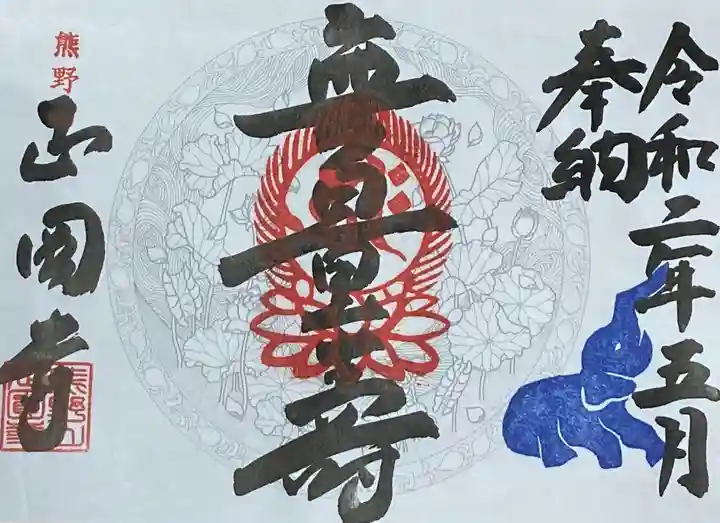 令和二年五月
奉納
無量寿
熊野
正圀寺